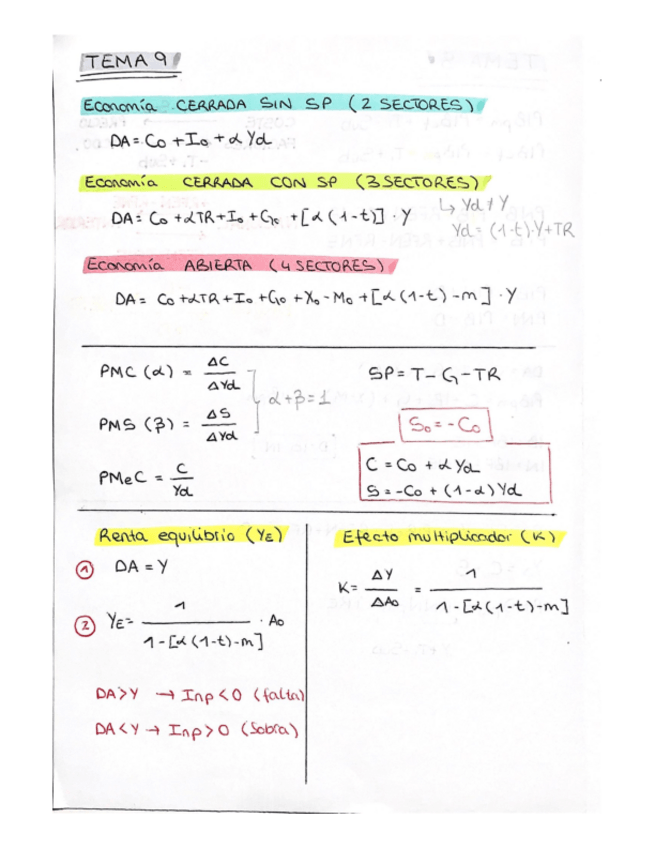 TEMA 9
Economía CERRADA SIN SP (2 SECTORES)
DA = Co + Io + α Yd
Economía CERRADA CON SP (3 SECTORES)
↳ Yd ≠ Y
DA = Co + αTR + Io + Go + [α (1-t)] · Y
Yd = (1-t)·Y+TR
Economía ABIERTA (4 SECTORES)
DA = Co + αTR + Io + Go + Xo - Mo + [α (1-t) - m] · Y
PMC (α) = ΔC / ΔYd
SP = T - G - TR
α + β = 1
PMS (β) = ΔS / ΔYd
So = - Co
PMeC = C / Yd
C = Co + α Yd
S = - Co + (1-α) Yd
Renta equilibrio (YE)
① DA = Y
② YE = 1 / 1 - [α (1-t) - m] · Ao
DA > Y → Inp < 0 (falta)
DA < Y → Inp > 0 (Sobra)
Efecto multiplicador (K)
K = ΔY / ΔAo = 1 / 1 - [α (1-t) - m]